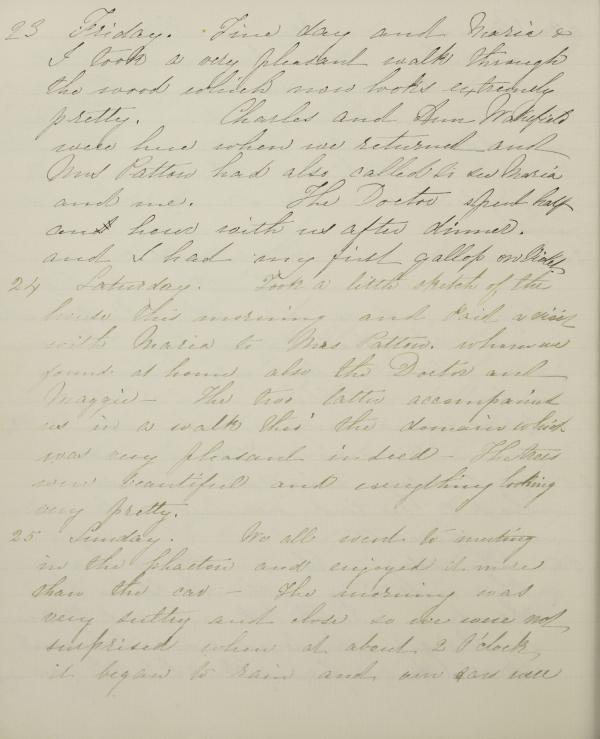 23 Friday. Fine day and Maria &
I took a very pleasant walk through
the wood which now looks extremely
pretty. Charles and Ann Wakefield
were here when we returned and
Mrs Patton had also called to see Maria
and me. The Doctor spent half
an hour with us after dinner.
and I had my first gallop on
24 Saturday. Took a little sketch of the
house this morning and paid a visit
with Maria to Mrs Patton. whom we
found at home also the Doctor and
Maggie - The two latter accompanied
us in a walk thro' the domain which
was very pleasant indeed - The trees
were beautiful and everything looking
very pretty.
25 Sunday. We all went to meeting
in the phaeton and enjoyed it more
than the car - The morning was
very sultry and close so we were not
surprised when at about 2 O'clock
it began to rain and our were